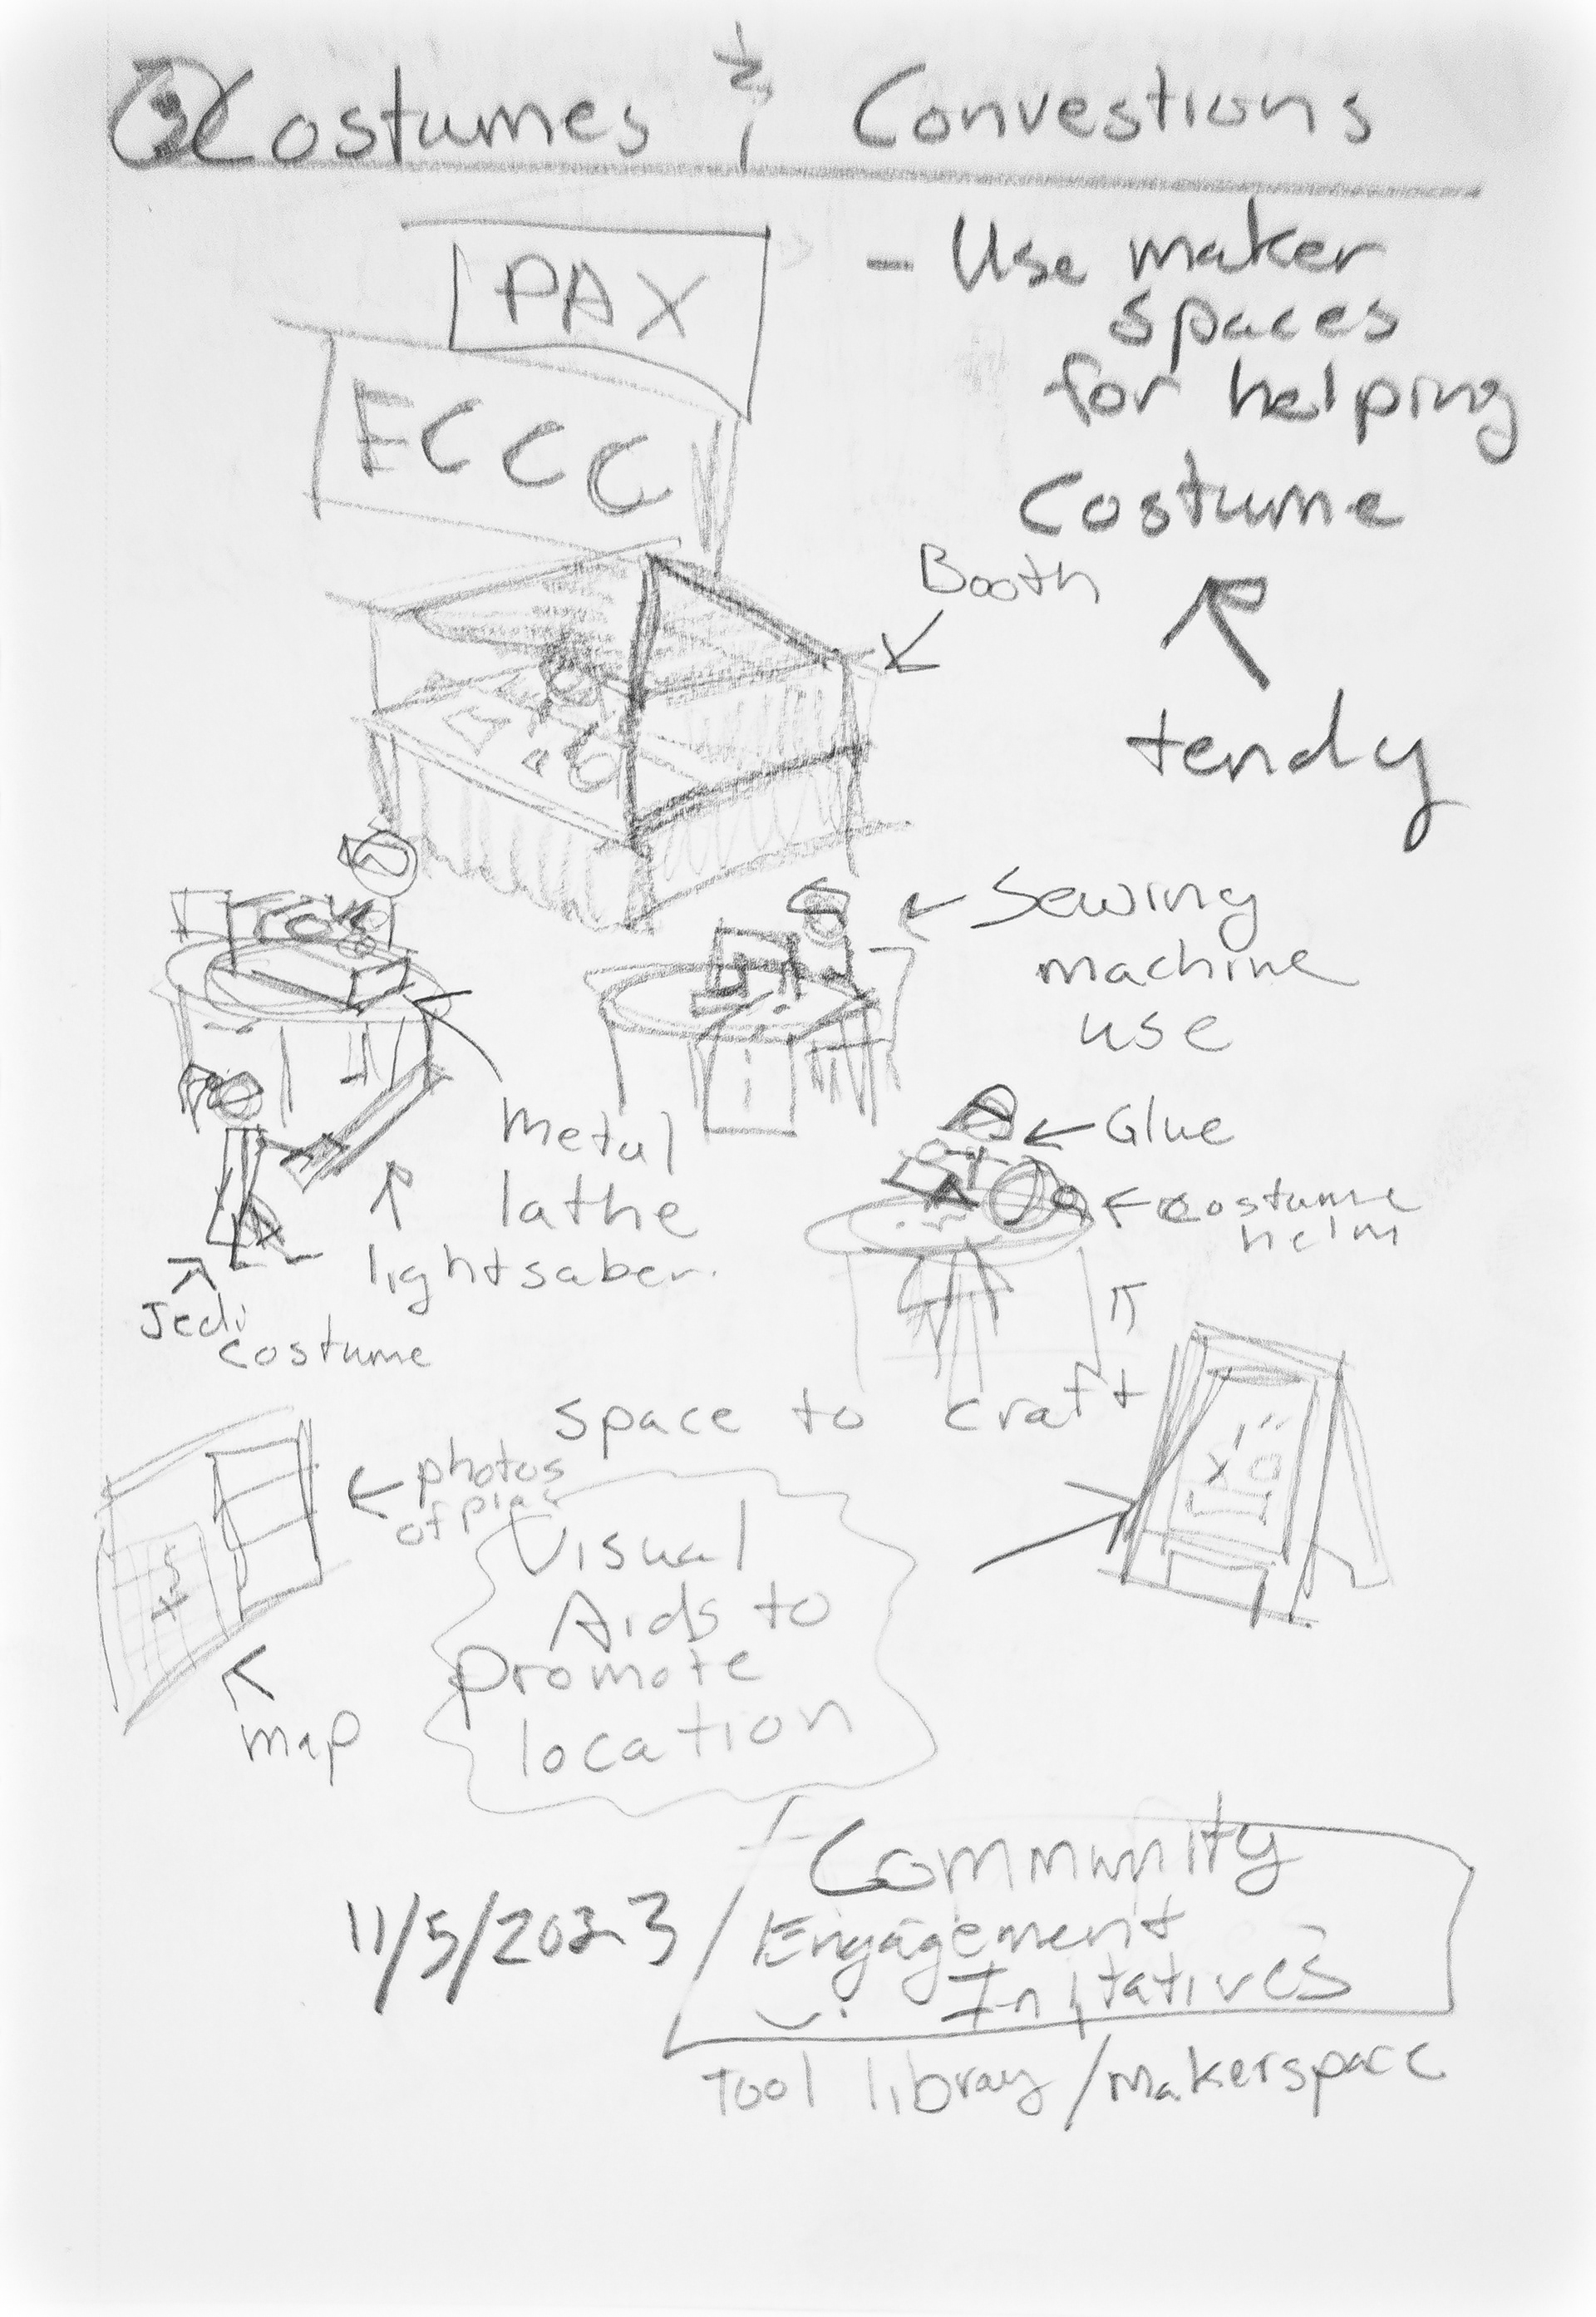 Costumes & Convestions
PAX
ECCC
- Use maker
spaces
for helping
Costume
tendy
Booth
Sewing
machine
use
Metal
lathe
lightsaber.
Jedi
costume
Glue
costume
helm
space to craft
photos
of
map
Visual
Aids to
promote
location
11/5/2023
Community
Engagement
Initatives
Tool library/makerspace